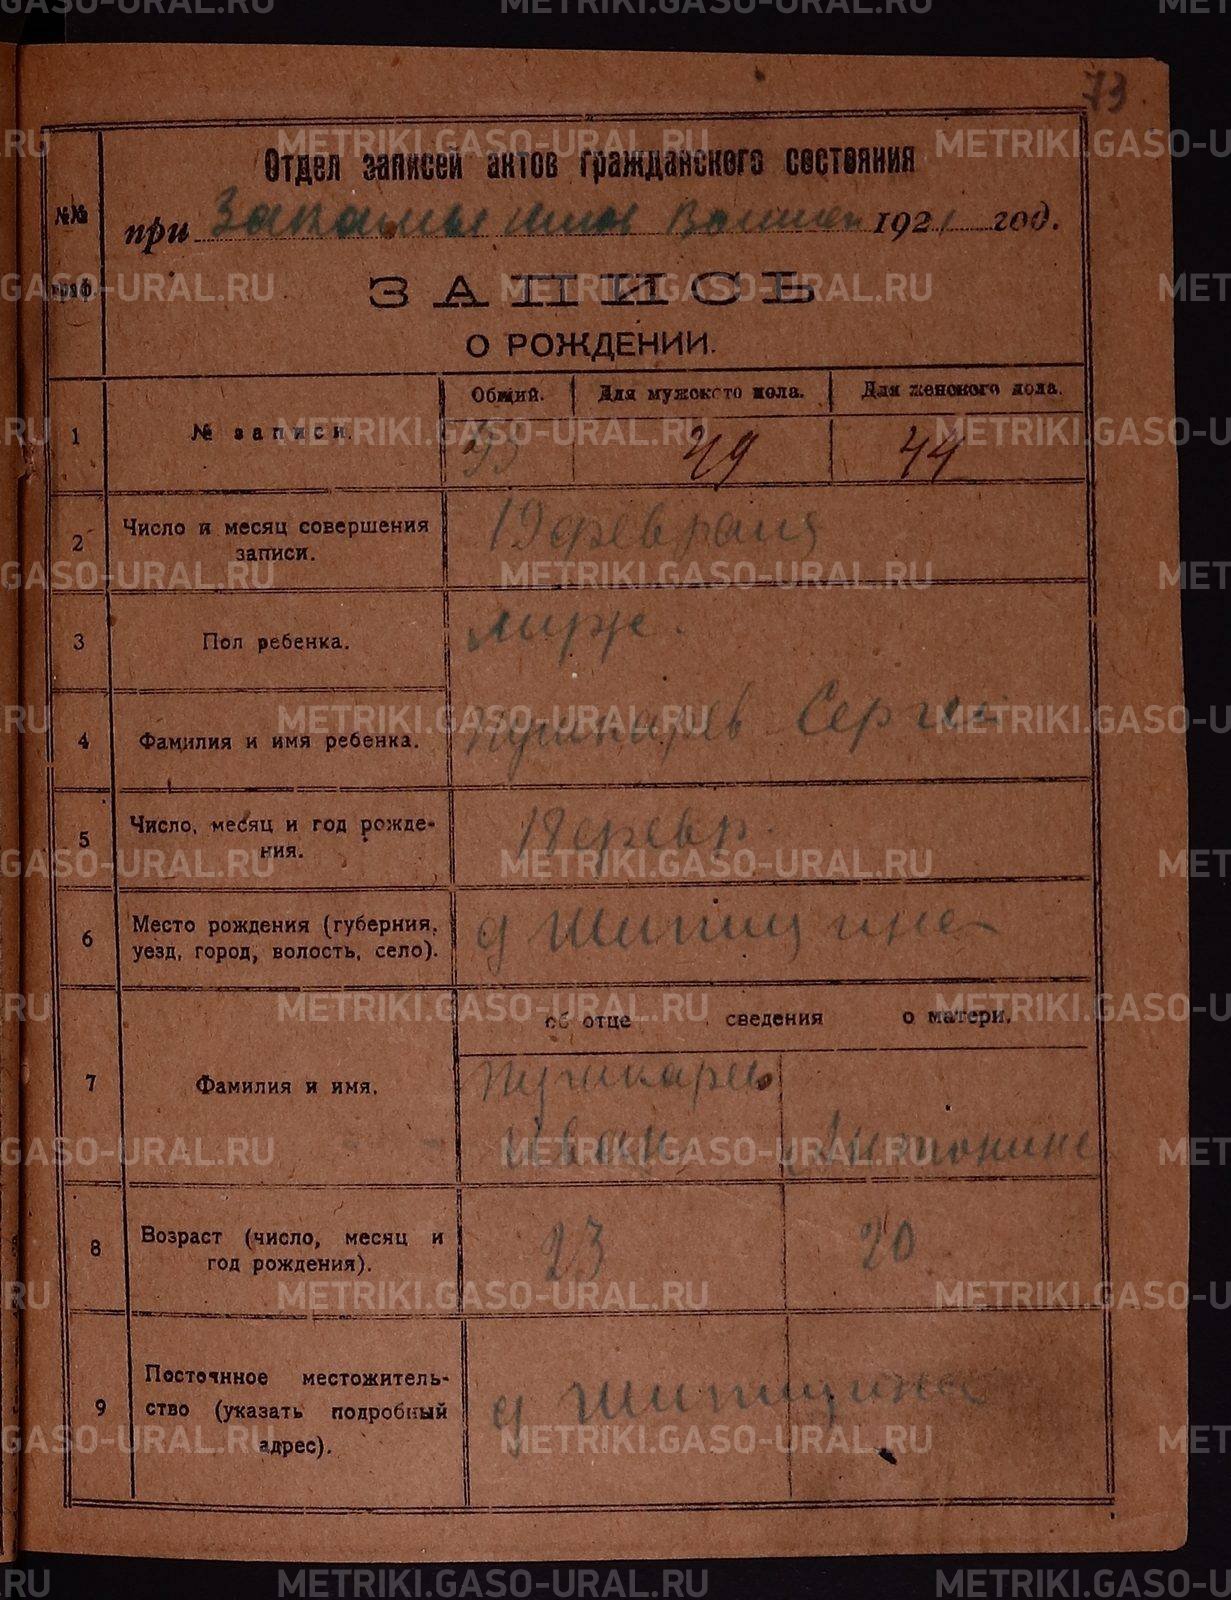 73
Отдел записей актов гражданского состояния
№№ граф.
при 1921 год.
ЗАПИСЬ
О РОЖДЕНИИ.
1 № записи. Общий. Для мужского пола. Для женского пола.
49 44
2 Число и месяц совершения записи. 19 февраля
3 Пол ребенка. муж.
4 Фамилия и имя ребенка. Пушкарев Сергей
5 Число, месяц и год рождения. 18 февр.
6 Место рождения (губерния, уезд, город, волость, село). д Шипицина
об отце сведения о матери.
7 Фамилия и имя. Пушкарев
Иван Антонина
8 Возраст (число, месяц и год рождения). 23 20
9 Постоянное местожительство (указать подробный адрес). д Шипицина
METRIKI.GASO-URAL.RU